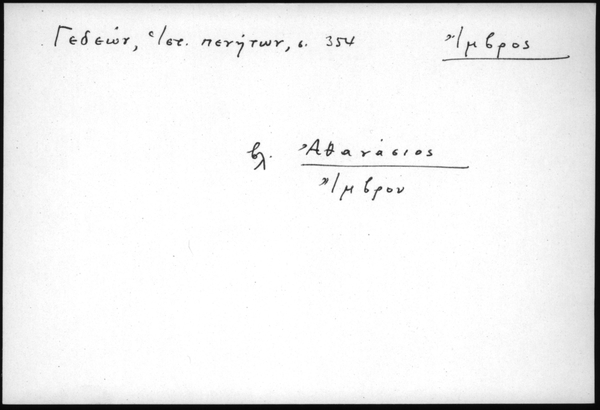 Γεδεών, Ἱστ. πενήτων, σ. 354
Ἴμβρος
βλ. Ἀθανάσιος
Ἴμβρου